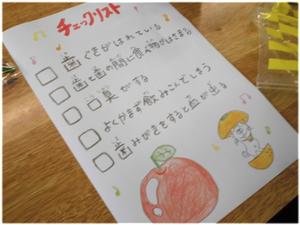 チェックリスト
歯ぐきがはれている
歯と歯の間に食べ物がはさまる
口臭がする
よくかまず飲みこんでしまう
歯みがきをすると血が出る